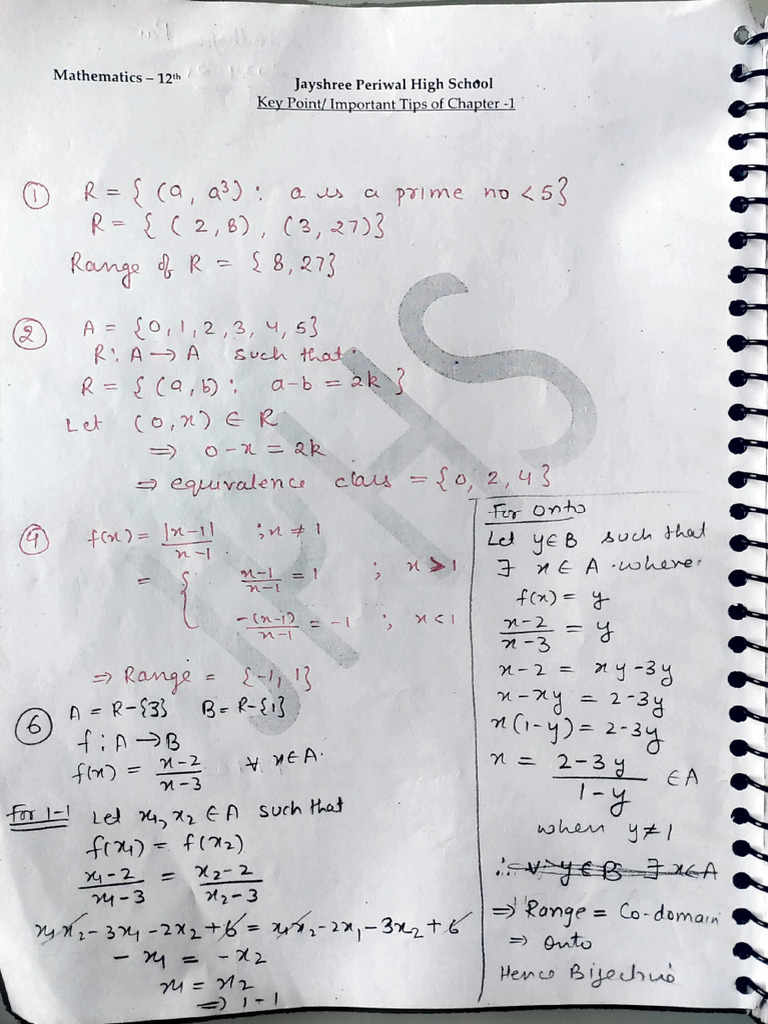 Mathematics – 12th
Jayshree Periwal High School
Key Point/ Important Tips of Chapter -1
JPHS
① R = { (a, a³) : a is a prime no < 5}
R = { (2, 8), (3, 27)}
Range of R = {8, 27}
② A = {0, 1, 2, 3, 4, 5}
R : A → A such that
R = { (a, b) : a-b = 2k }
Let (0, x) ∈ R
⇒ 0-x = 2k
⇒ equivalence class = {0, 2, 4}
④ f(x) = |x-1|/x-1 ; x ≠ 1
= { x-1/x-1 = 1 ; x > 1
-(x-1)/x-1 = -1 ; x < 1
⇒ Range = {-1, 1}
⑥ A = R-{3} B = R-{1}
f : A → B
f(x) = x-2/x-3 ∀ x ∈ A.
For 1-1 Let x₁, x₂ ∈ A such that
f(x₁) = f(x₂)
x₁-2/x₁-3 = x₂-2/x₂-3
x₁x₂ -3x₁ -2x₂ +6 = x₁x₂ -2x₁ -3x₂ +6
- x₁ = -x₂
x₁ = x₂
⇒ 1-1
For onto
Let y ∈ B such that
∃ x ∈ A where
f(x) = y
x-2/x-3 = y
x-2 = xy-3y
x-xy = 2-3y
x(1-y) = 2-3y
x = 2-3y/1-y ∈ A
when y ≠ 1
∴ ∀ y ∈ B ∃ x ∈ A
⇒ Range = Co-domain
⇒ onto
Hence Bijective